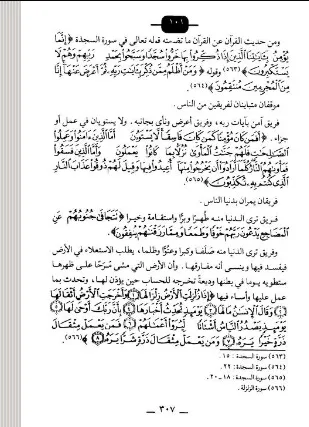 ١٠١
ومن حديث القرآن عن القرآن ما تضمنه قوله تعالى في سورة السجدة ﴿ إِنَّمَا
يُؤْمِنُ بِآيَاتِنَا الَّذِينَ إِذَا ذُكِّرُوا بِهَا خَرُّوا سُجَّدًا وَسَبَّحُوا بِحَمْدِ رَبِّهِمْ وَهُمْ لَا
يَسْتَكْبِرُونَ ﴾ (٥٦٣) وقوله ﴿ وَمَنْ أَظْلَمُ مِمَّن ذُكِّرَ بِآيَاتِ رَبِّهِ ثُمَّ أَعْرَضَ عَنْهَا إِنَّا
مِنَ الْمُجْرِمِينَ مُنتَقِمُونَ ﴾ (٥٦٤)
موقفان متباينان لفريقين من الناس .
فريق آمن بآيات ربه، وفريق أعرض ونأى بجانبه . ولا يستويان في عمل أو
جزاء . ﴿ أَفَمَن كَانَ مُؤْمِنًا كَمَن كَانَ فَاسِقًا لَّا يَسْتَوُونَ أَمَّا الَّذِينَ آمَنُوا وَعَمِلُوا
الصَّالِحَاتِ فَلَهُمْ جَنَّاتُ الْمَأْوَى نُزُلًا بِمَا كَانُوا يَعْمَلُونَ وَأَمَّا الَّذِينَ فَسَقُوا
فَمَأْوَاهُمُ النَّارُ كُلَّمَا أَرَادُوا أَن يَخْرُجُوا مِنْهَا أُعِيدُوا فِيهَا وَقِيلَ لَهُمْ ذُوقُوا عَذَابَ النَّارِ
الَّذِي كُنتُم بِهِ تُكَذِّبُونَ ﴾ (٥٦٥)
فريقان يمران بدنيا الناس .
فريق ترى الدنيا منه طُهرًا وبرًا واستقامة وخيرا ﴿ تَتَجَافَى جُنُوبُهُمْ عَنِ
الْمَضَاجِعِ يَدْعُونَ رَبَّهُمْ خَوْفًا وَطَمَعًا وَمِمَّا رَزَقْنَاهُمْ يُنفِقُونَ ﴾
وفريق ترى الدنيا منه صَلَفا وكبرا وعتوًا وظلما، يطلب الاستعلاء في الأرض
فيفسد فيها وينسى أنه مفارقها . وأن الأرض التي مشى مَرَحًا على ظهرها
ستطويه يوما في بطنها وديعةً تخرجه للحساب حين يؤذن لها، وتحدث بما
عمل عليها وأساء فيها ﴿ إِذَا زُلْزِلَتِ الْأَرْضُ زِلْزَالَهَا ﴿١﴾ وَأَخْرَجَتِ الْأَرْضُ أَثْقَالَهَا
﴿٢﴾ وَقَالَ الْإِنسَانُ مَا لَهَا ﴿٣﴾ يَوْمَئِذٍ تُحَدِّثُ أَخْبَارَهَا ﴿٤﴾ بِأَنَّ رَبَّكَ أَوْحَى لَهَا ﴿٥﴾
يَوْمَئِذٍ يَصْدُرُ النَّاسُ أَشْتَاتًا لِّيُرَوْا أَعْمَالَهُمْ ﴿٦﴾ فَمَن يَعْمَلْ مِثْقَالَ
ذَرَّةٍ خَيْرًا يَرَهُ ﴿٧﴾ وَمَن يَعْمَلْ مِثْقَالَ ذَرَّةٍ شَرًّا يَرَهُ ﴾ (٥٦٦)
(٥٦٣) سورة السجدة : ١٥ .
(٥٦٤) سورة السجدة : ٢٢ .
(٥٦٥) سورة السجدة : ١٨ - ٢٠ .
(٥٦٦) سورة الزلزلة .
— ٣٠٧ —